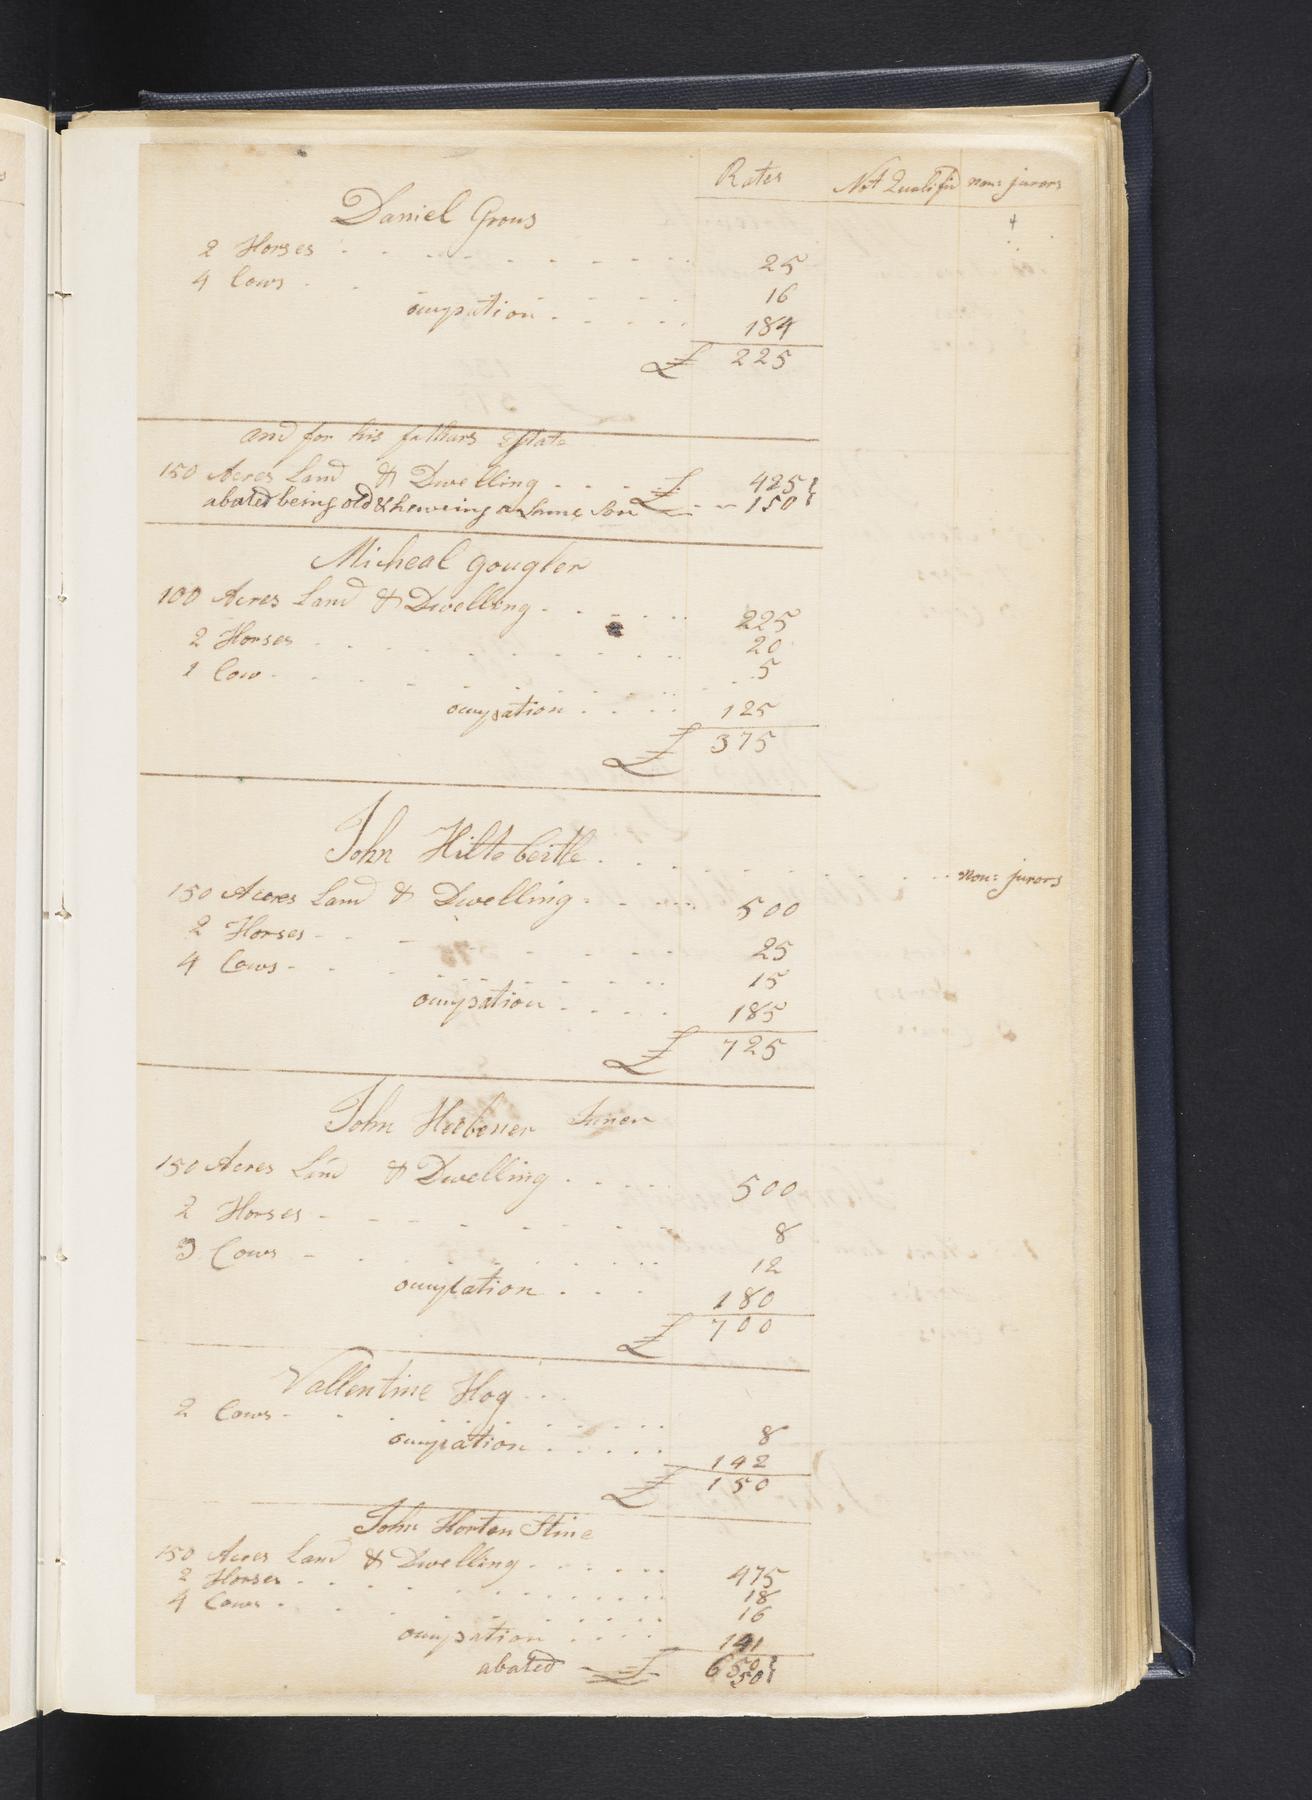 Rates Not Qualifid non: jurors
Daniel Grous +
2 Horses 25
4 Cows 16
ocupation 184
£ 225
and for his fathars Estate
150 Acres Land & Dwelling £ 425
abated being old & haveing a Lame Son £ 150
Micheal gougler
100 Acres Land & Dwelling 225
2 Horses 20
1 Cow 5
ocupation 125
£ 375
John Hiltebeitle non: jurors
150 Acres Land & Dwelling 500
2 Horses 25
4 Cows 15
ocupation 185
£ 725
John Heebener Juner
150 Acres Land & Dwelling 500
2 Horses 8
3 Cows 12
ocupation 180
£ 700
Vallentine Hog
2 Cows 8
ocupation 142
£ 150
John Horten Stine
150 Acres Land & Dwelling 475
2 Horses 18
4 Cows 16
ocupation 141
£ 650
abated 50